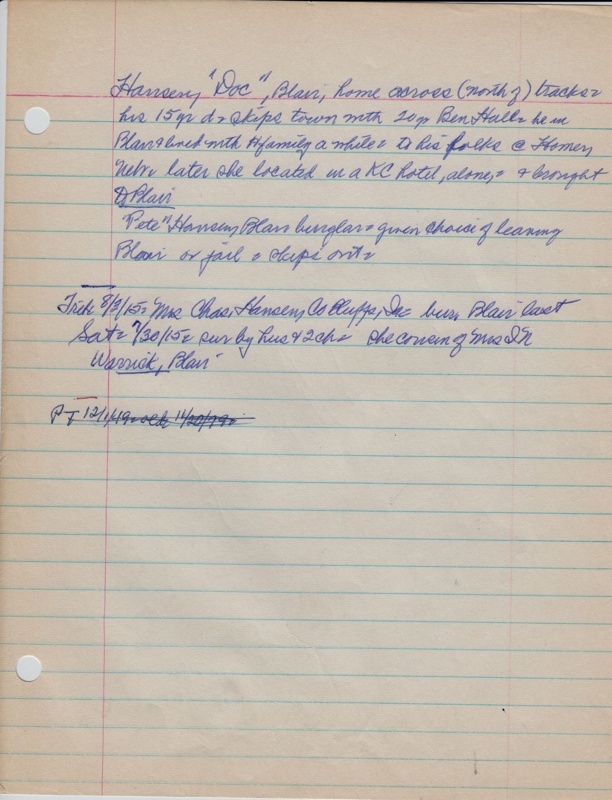 Hansen, "Doc", Blair, home across (north of) tracks=
his 15yr d= skips town with 20yr Ben Hall= he in
Blair & lived with H family a while= to his folks @ Homer,
Nebr= later she located in a KC hotel, alone,= & brought
to Blair
"Pete" Hansen, Blair burglar= given choice of leaving
Blair or jail= skips out=
Trib 8/3/15= Mrs Chas. Hansen, Co Bluffs, Ia= bur Blair last
Sat= 7/30/15= sur by hus & 2 ch= she cousin of Mrs
Warrick, Blair
PT 12/1/49= 11/20/79=